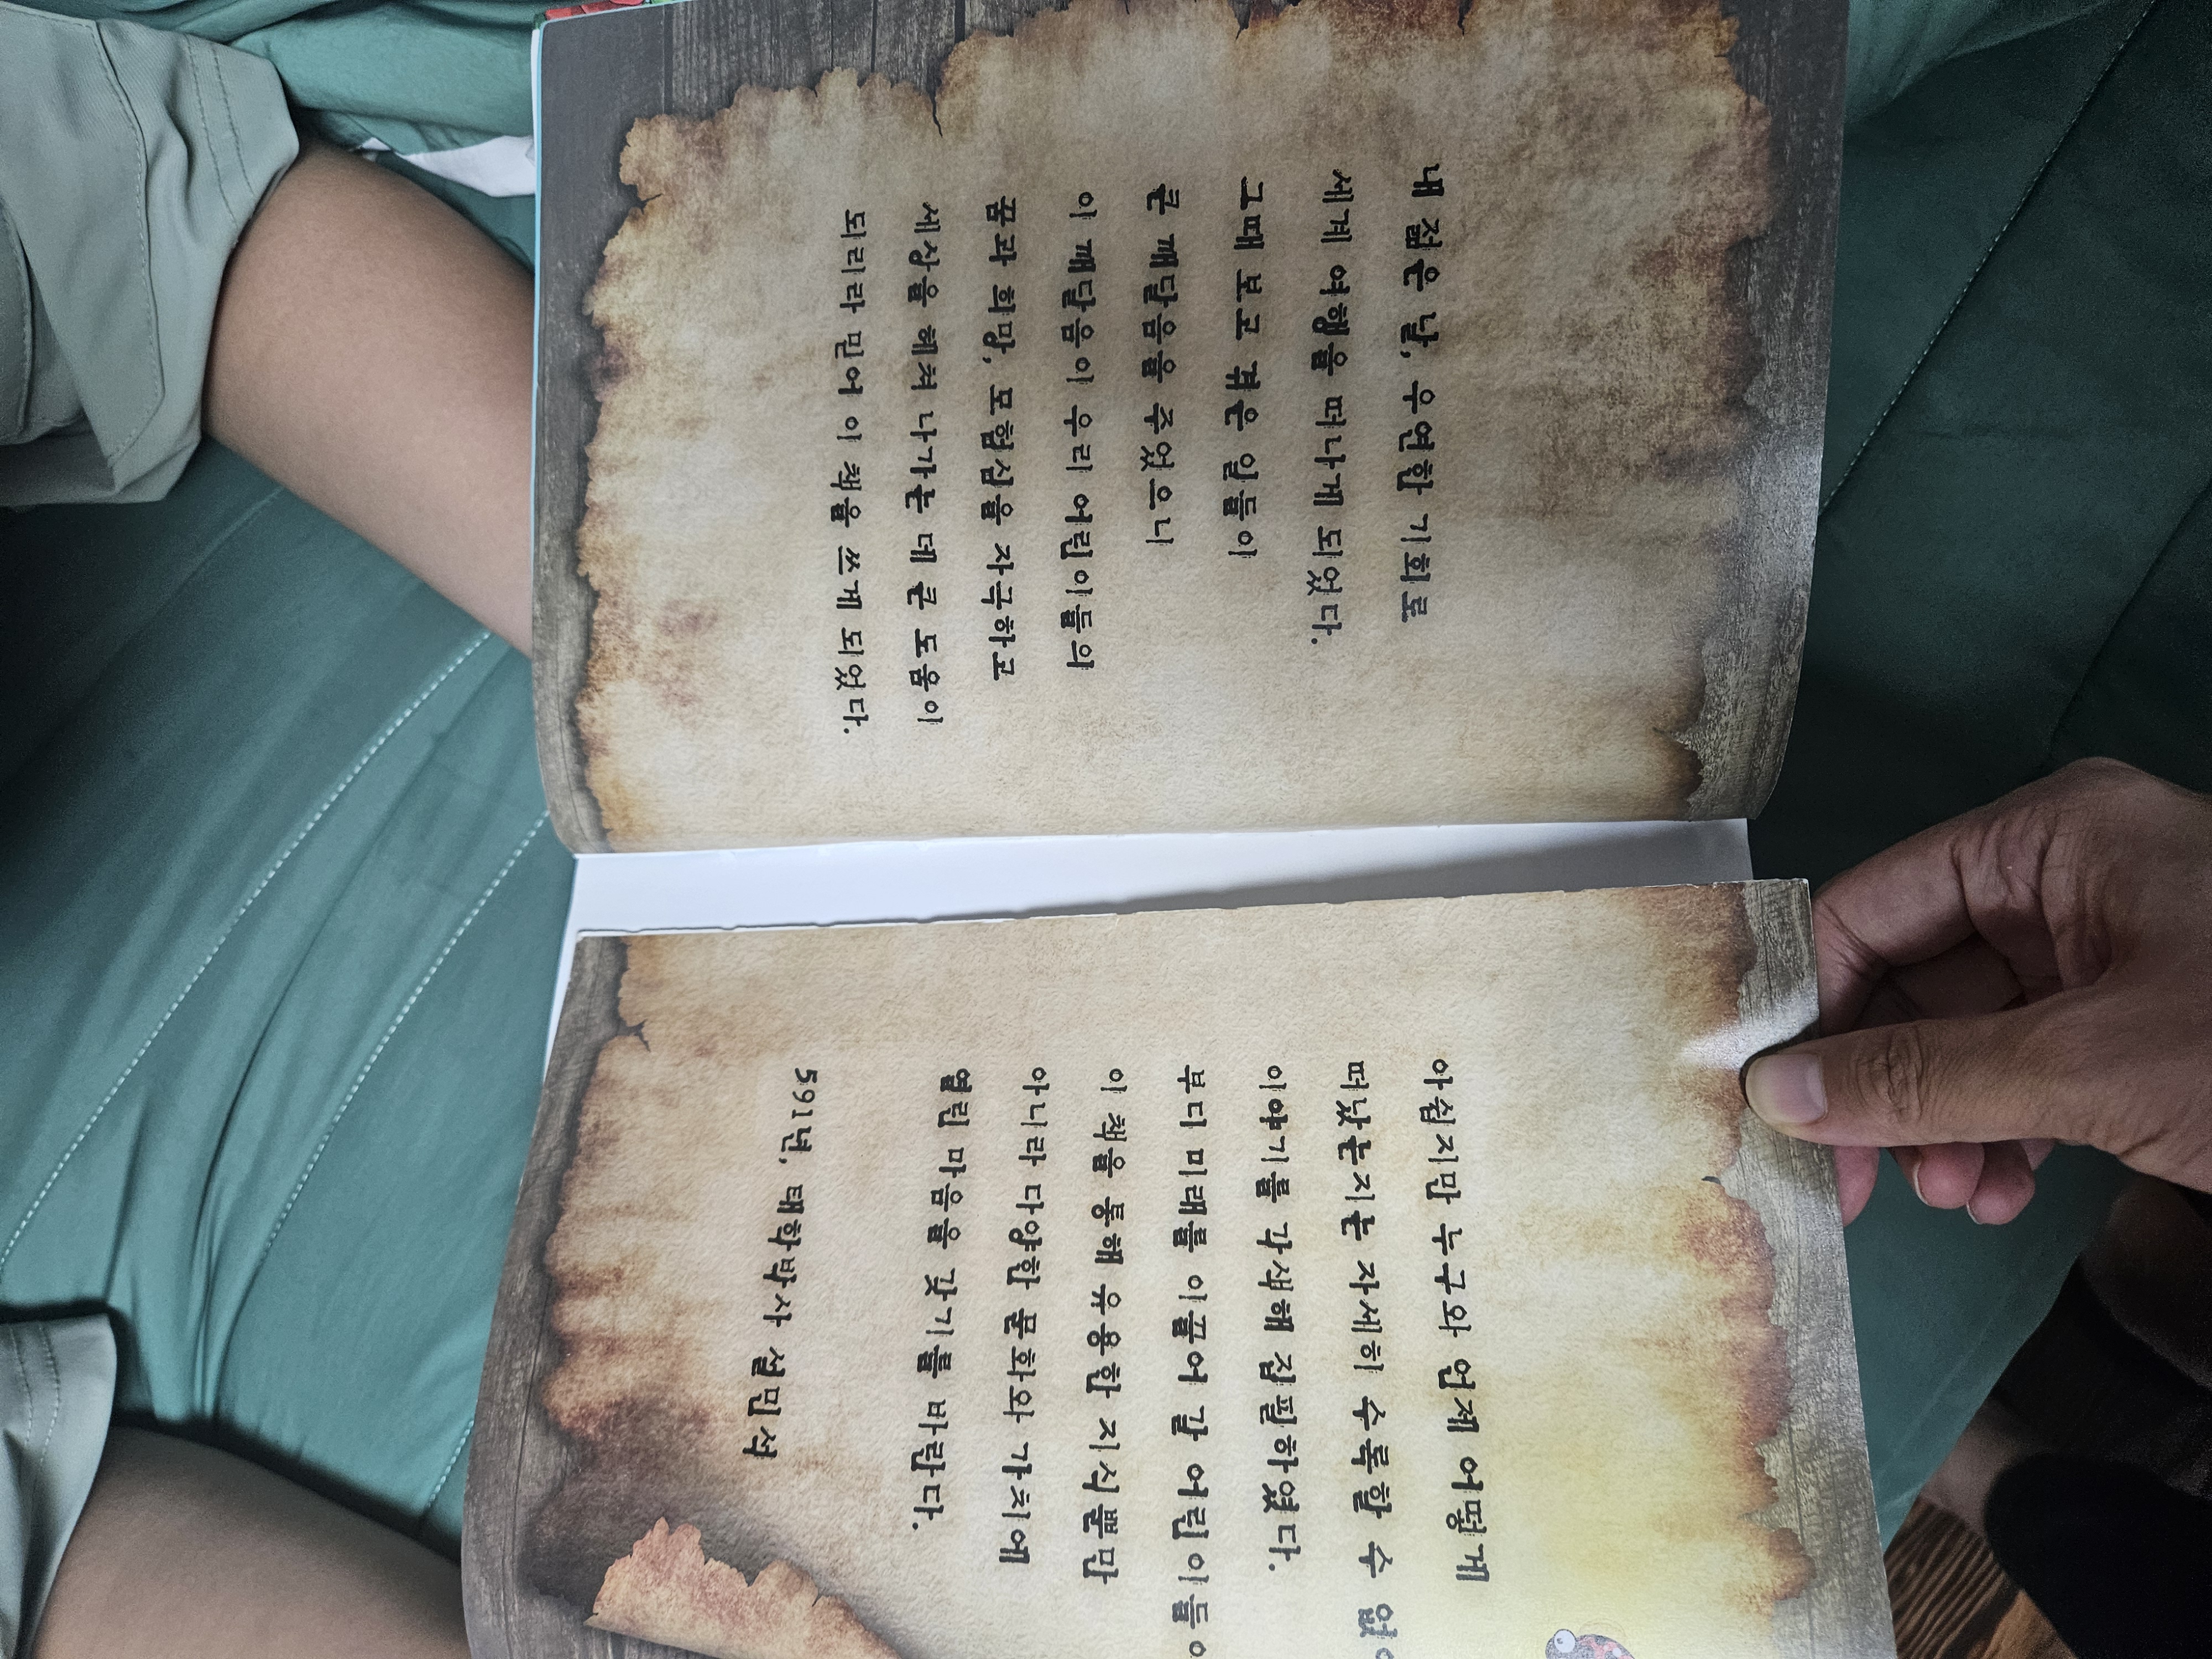 내 젊은 날, 우연한 기회로
세계 여행을 떠나게 되었다.
그때 보고 겪은 일들이
큰 깨달음을 주었으니
이 깨달음이 우리 어린이들의
꿈과 희망, 모험심을 자극하고
세상을 헤쳐 나가는 데 큰 도움이
되리라 믿어 이 책을 쓰게 되었다.
아쉽지만 누구와 언제 어떻게
떠났는지는 자세히 수록할 수
이야기를 각색해 집필하였다.
부디 미래를 이끌어 갈 어린이들
이 책을 통해 유용한 지식뿐만
아니라 다양한 문화와 가치에
열린 마음을 갖기를 바란다.
591년, 태학박사 설민석